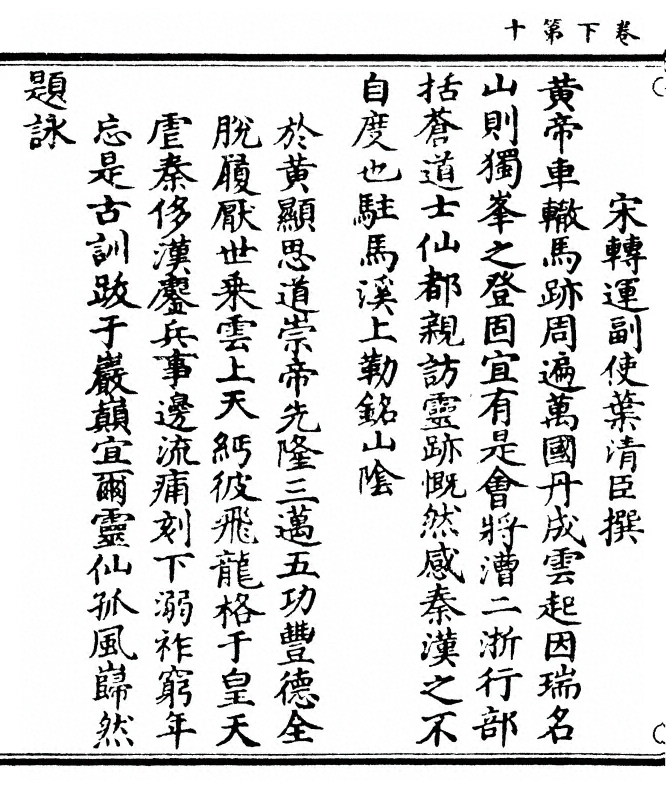 卷下第十
宋轉運副使葉清臣撰
黄帝車轍馬跡周遍萬國丹成雲起因瑞名
山則獨峯之登固宜有是會將漕二浙行部
括蒼道士仙都親訪靈跡慨然感秦漢之不
自度也駐馬溪上勒銘山陰
於黄顯思道崇帝先隆三邁五功豐德全
脫屨厭世乗雲上天絅彼飛龍格于皇天
虐秦侈漢鏖兵事邊流痡刻下溺祚窮年
忘是古訓跋于巖巔宜爾靈仙孤風巋然
題詠